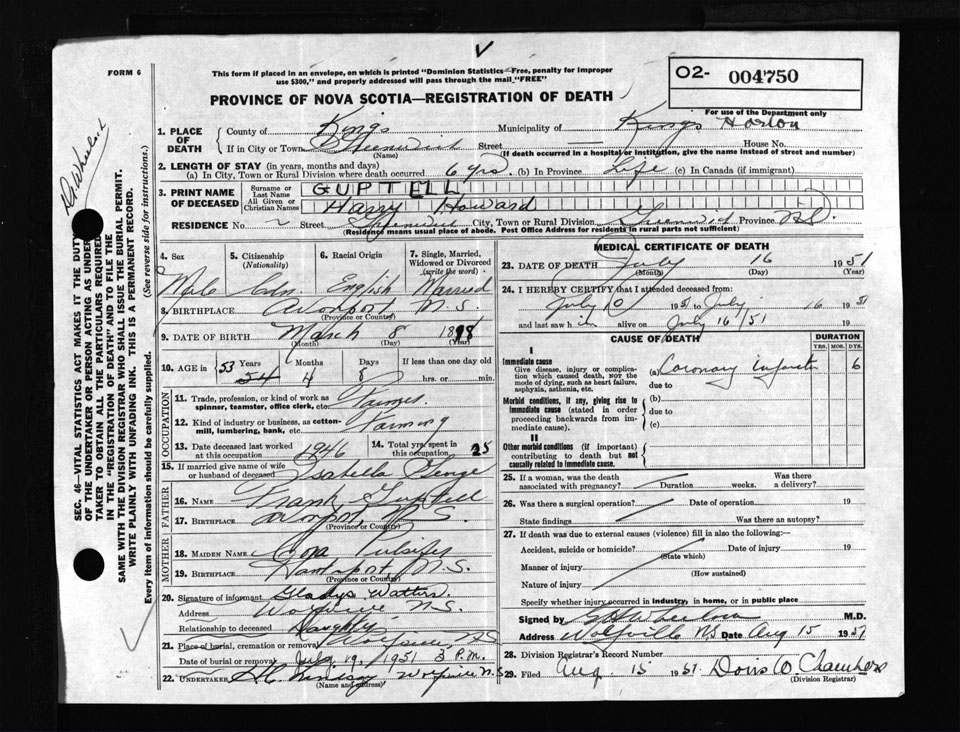 √
FORM 6
This form if placed in an envelope, on which is printed "Dominion Statistics—Free, penalty for improper
use $300," and properly addressed will pass through the mail "FREE"
O2- 004750
For use of the Department only
PROVINCE OF NOVA SCOTIA—REGISTRATION OF DEATH
1. PLACE OF DEATH { County of Kings Municipality of Kings Horton
If in City or Town Greenwich (Name) Street — House No.
(If death occurred in a hospital or institution, give the name instead of street and number)
2. LENGTH OF STAY (in years, months and days)
(a) In City, Town or Rural Division where death occurred 6 yrs. (b) In Province Life (c) In Canada (if immigrant)
3. PRINT NAME OF DECEASED { Surname or Last Name GUPTELL
All Given or Christian Names Harry Howard
RESIDENCE No. ~ Street Greenwich City, Town or Rural Division Greenwich Province N.S.
(Residence means usual place of abode. Post Office Address for residents in rural parts not sufficient)
4. Sex 5. Citizenship (Nationality) 6. Racial Origin 7. Single, Married, Widowed or Divorced (write the word)
Male Cdn. English Married
8. BIRTHPLACE Avonport N.S.
(Province or Country)
9. DATE OF BIRTH March 8 1898
(Month) (Day) (Year)
10. AGE in { 53 Years 54 Months 4 Days 8 If less than one day old hrs. or min.
OCCUPATION
11. Trade, profession, or kind of work as spinner, teamster, office clerk, etc. Farmer
12. Kind of industry or business, as cotton-mill, lumbering, bank, etc. Farming
13. Date deceased last worked at this occupation 1946 14. Total yrs. spent in this occupation 25
15. If married give name of wife or husband of deceased Isabella George
FATHER
16. NAME Frank Guptell
17. BIRTHPLACE Avonport N.S.
(Province or Country)
MOTHER
18. MAIDEN NAME Cora Pulsifer
19. BIRTHPLACE Hantsport N.S.
(Province or Country)
20. Signature of informant Gladys Watters
Address Wolfville N.S.
Relationship to deceased Daughter
21. Place of burial, cremation or removal Wolfville N.S.
Date of burial or removal July 19, 1951 3 P.M.
22. UNDERTAKER Lindsay Wolfville N.S.
(Name and address)
MEDICAL CERTIFICATE OF DEATH
23. DATE OF DEATH July 16 1951
(Month) (Day) (Year)
24. I HEREBY CERTIFY that I attended deceased from:
July 10 1951 to July 16 1951
and last saw h im alive on July 16/51 19
CAUSE OF DEATH DURATION
YRS. MOS. DYS.
I
Immediate cause (a) Coronary infarct 6
Give disease, injury or complication which caused death, NOT the mode of dying, such as heart failure, asphyxia, asthenia, etc.
due to
Morbid conditions, if any, giving rise to immediate cause (stated in order proceeding backwards from immediate cause).
(b)
due to
(c)
II
Other morbid conditions (if important) contributing to death but not causally related to immediate cause.
25. If a woman, was the death associated with pregnancy? Duration weeks. Was there a delivery?
26. Was there a surgical operation? Date of operation 19
State findings Was there an autopsy?
27. If death was due to external causes (violence) fill in also the following:—
Accident, suicide or homicide? (State which) Date of injury 19
Manner of injury
(How sustained)
Nature of injury
Specify whether injury occurred in industry, in home, or in public place
Signed by M.D.
Address Wolfville NS Date Aug 15 1951
28. Division Registrar's Record Number
29. Filed Aug. 15 1951 Doris W. Chambers
(Division Registrar)
SEC. 46—VITAL STATISTICS ACT MAKES IT THE DUTY
OF THE UNDERTAKER OR PERSON ACTING AS UNDER-
TAKER TO OBTAIN ALL THE PARTICULARS REQUIRED
IN THE "REGISTRATION OF DEATH" AND TO FILE THE
SAME WITH THE DIVISION REGISTRAR WHO SHALL ISSUE THE BURIAL PERMIT.
WRITE PLAINLY WITH UNFADING INK. THIS IS A PERMANENT RECORD.
Every item of information should be carefully supplied. (See reverse side for instructions.)